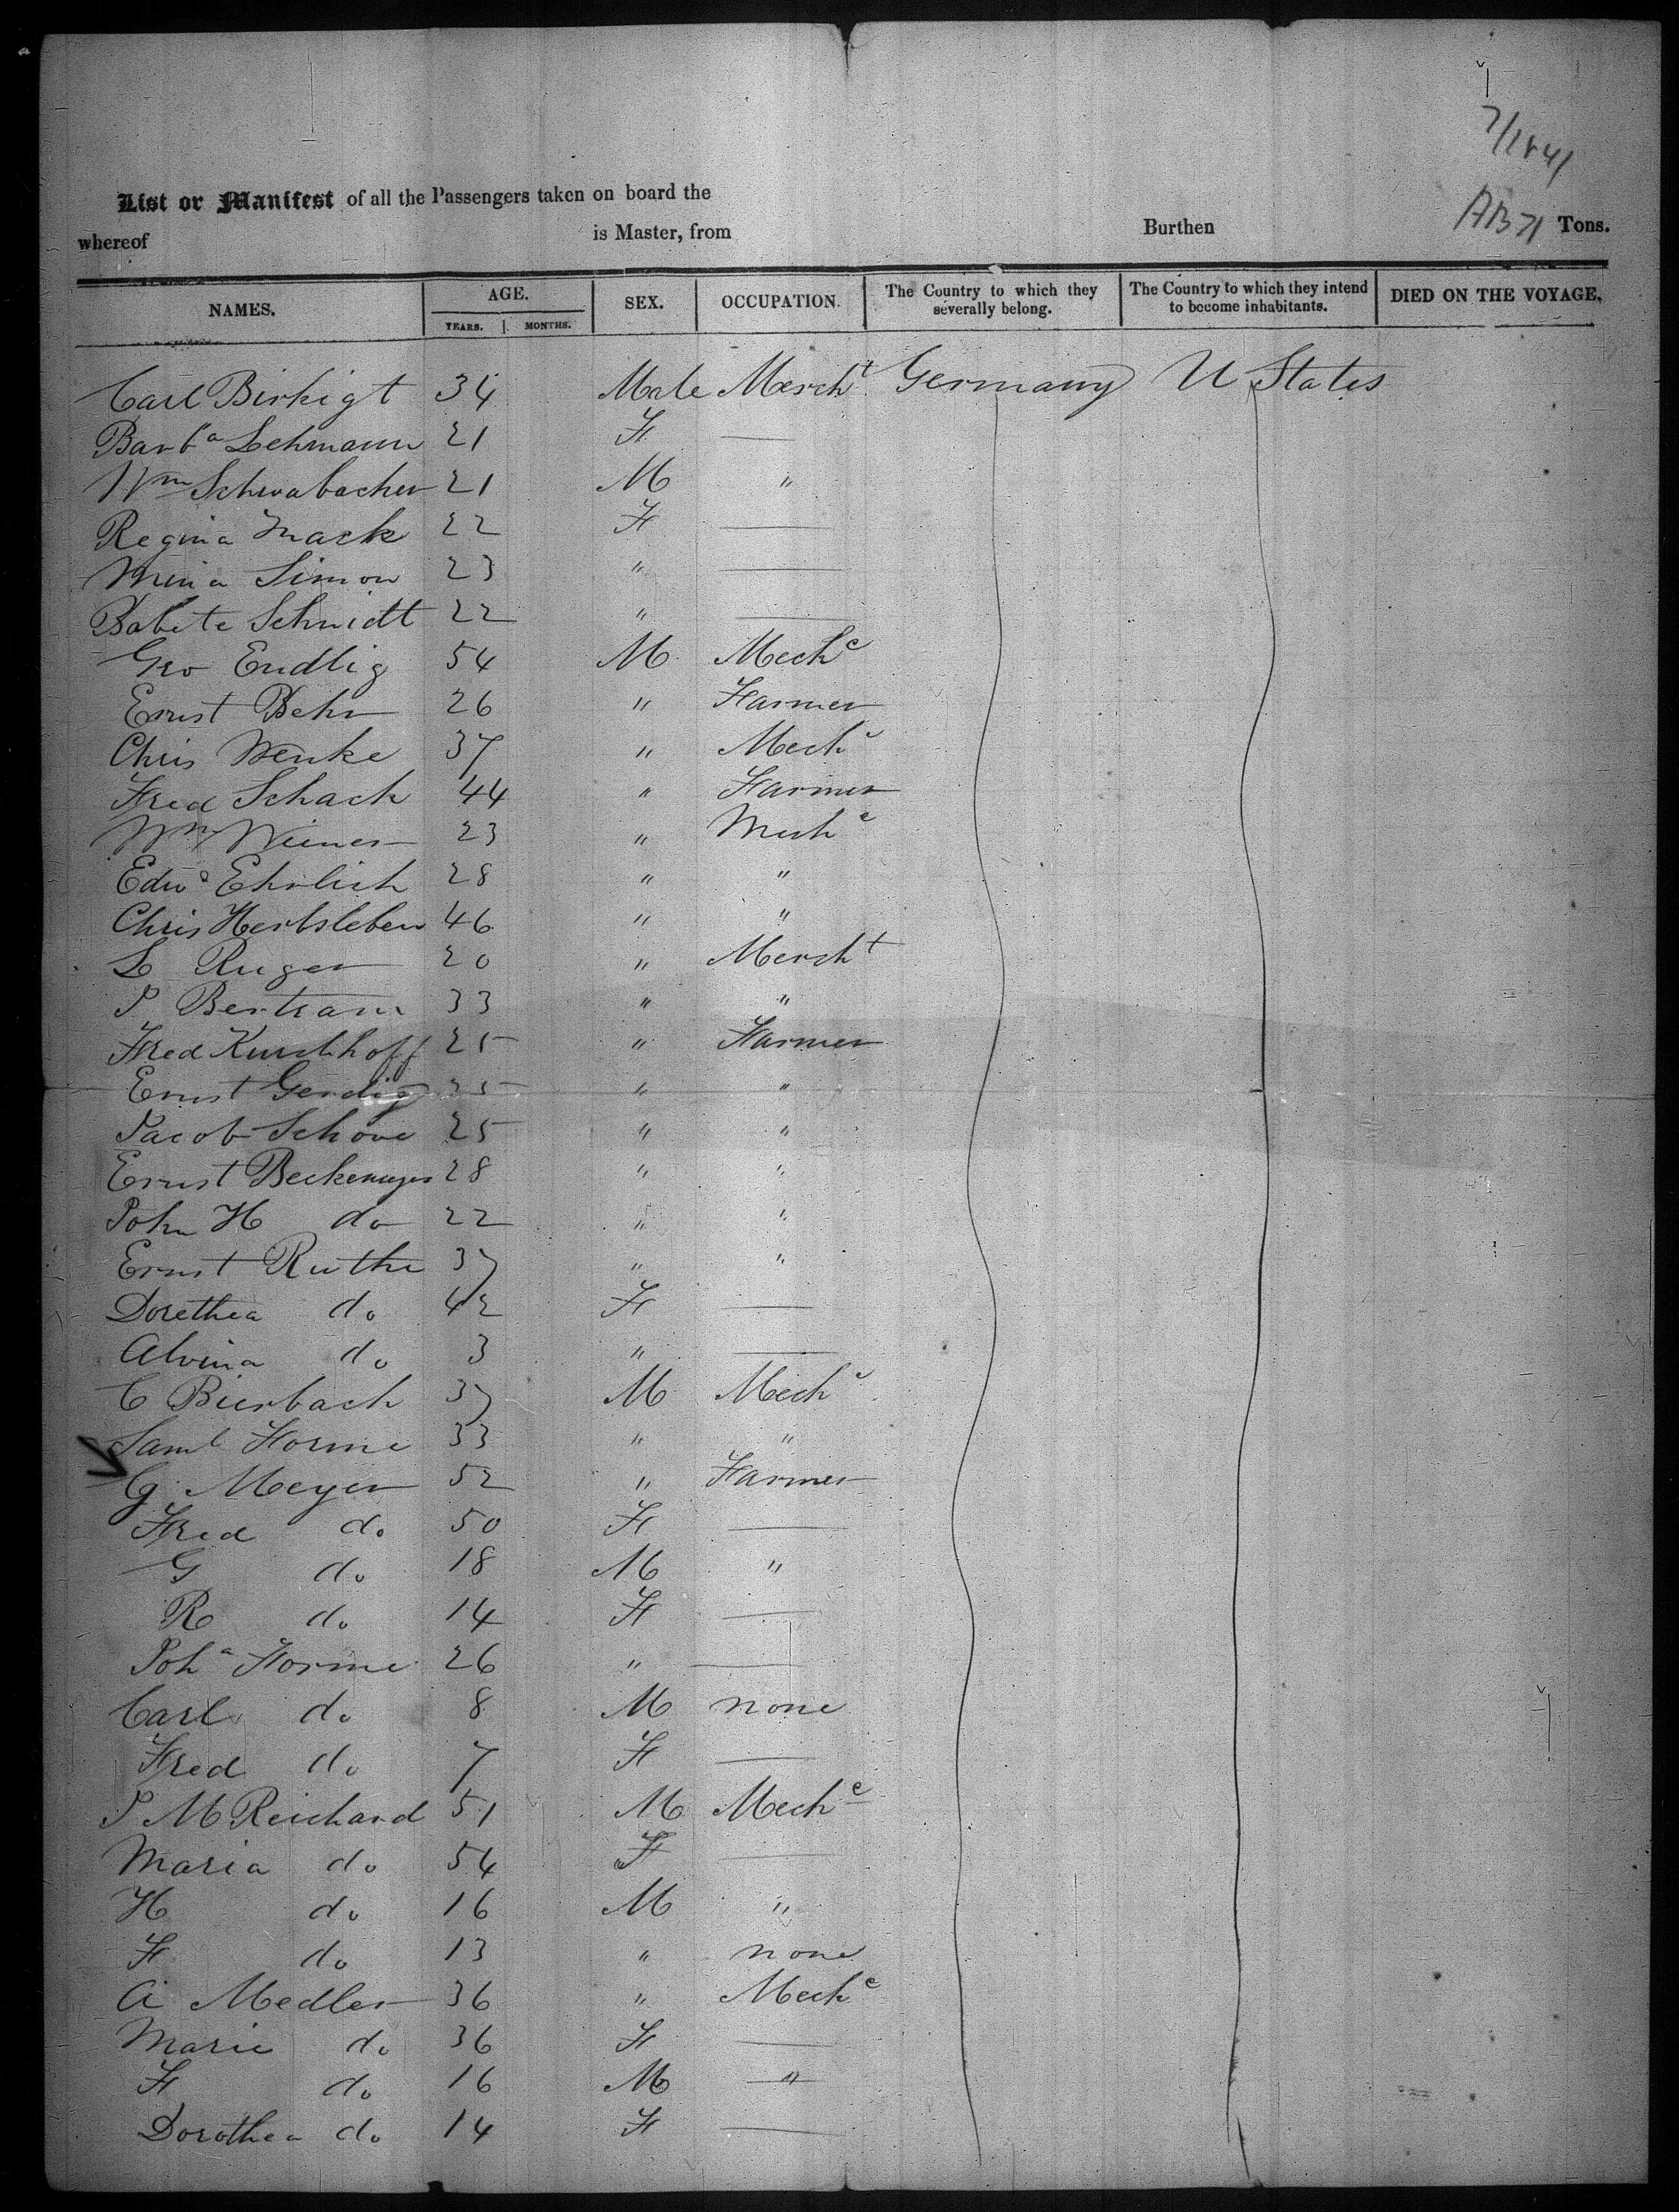 7/1841
List or Manifest of all the Passengers taken on board the
AB71
whereof is Master, from Burthen Tons.
NAMES. AGE. SEX. OCCUPATION. The Country to which they severally belong. The Country to which they intend to become inhabitants. DIED ON THE VOYAGE.
YEARS. MONTHS.
Carl Birkigt 34 Male Mercht Germany U States
Barba Lehmann 21 F —
Wm Schwabacher 21 M "
Regina Mack 22 F —
Mina Simon 23 " —
Babete Schmidt 22 " —
Geo Endlig 54 M Mechc
Ernst Behr 26 " Farmer
Chris Wenke 37 " Mechc
Fred Schack 44 " Farmer
Wm Wiener 23 " Mechc
Edwd Ehrlich 28 " "
Chris Herbsleben 46 " "
L Ruger 20 " Mercht
J Bertram 33 " "
Fred Kirchhoff 25 " Farmer
Ernst Gerdig 25 " "
Jacob Schove 25 " "
Ernst Beckemeyer 28 " "
John H do 22 " "
Ernst Ruthe 37 " "
Dorethea do 42 F —
Alvina do 3 " —
C Bierbach 37 M Mechc
Saml Horme 33 " "
G Meyer 52 " Farmer
Fred do 50 F —
G do 18 M "
R do 14 F —
Joha Horme 26 " —
Carl do 8 M none
Fred do 7 F —
J M Reichard 51 M Mechc
Maria do 54 F —
H do 16 M "
F do 13 " none
A Medler 36 " Mechc
Marie do 36 F —
F do 16 M "
Dorothea do 14 F —